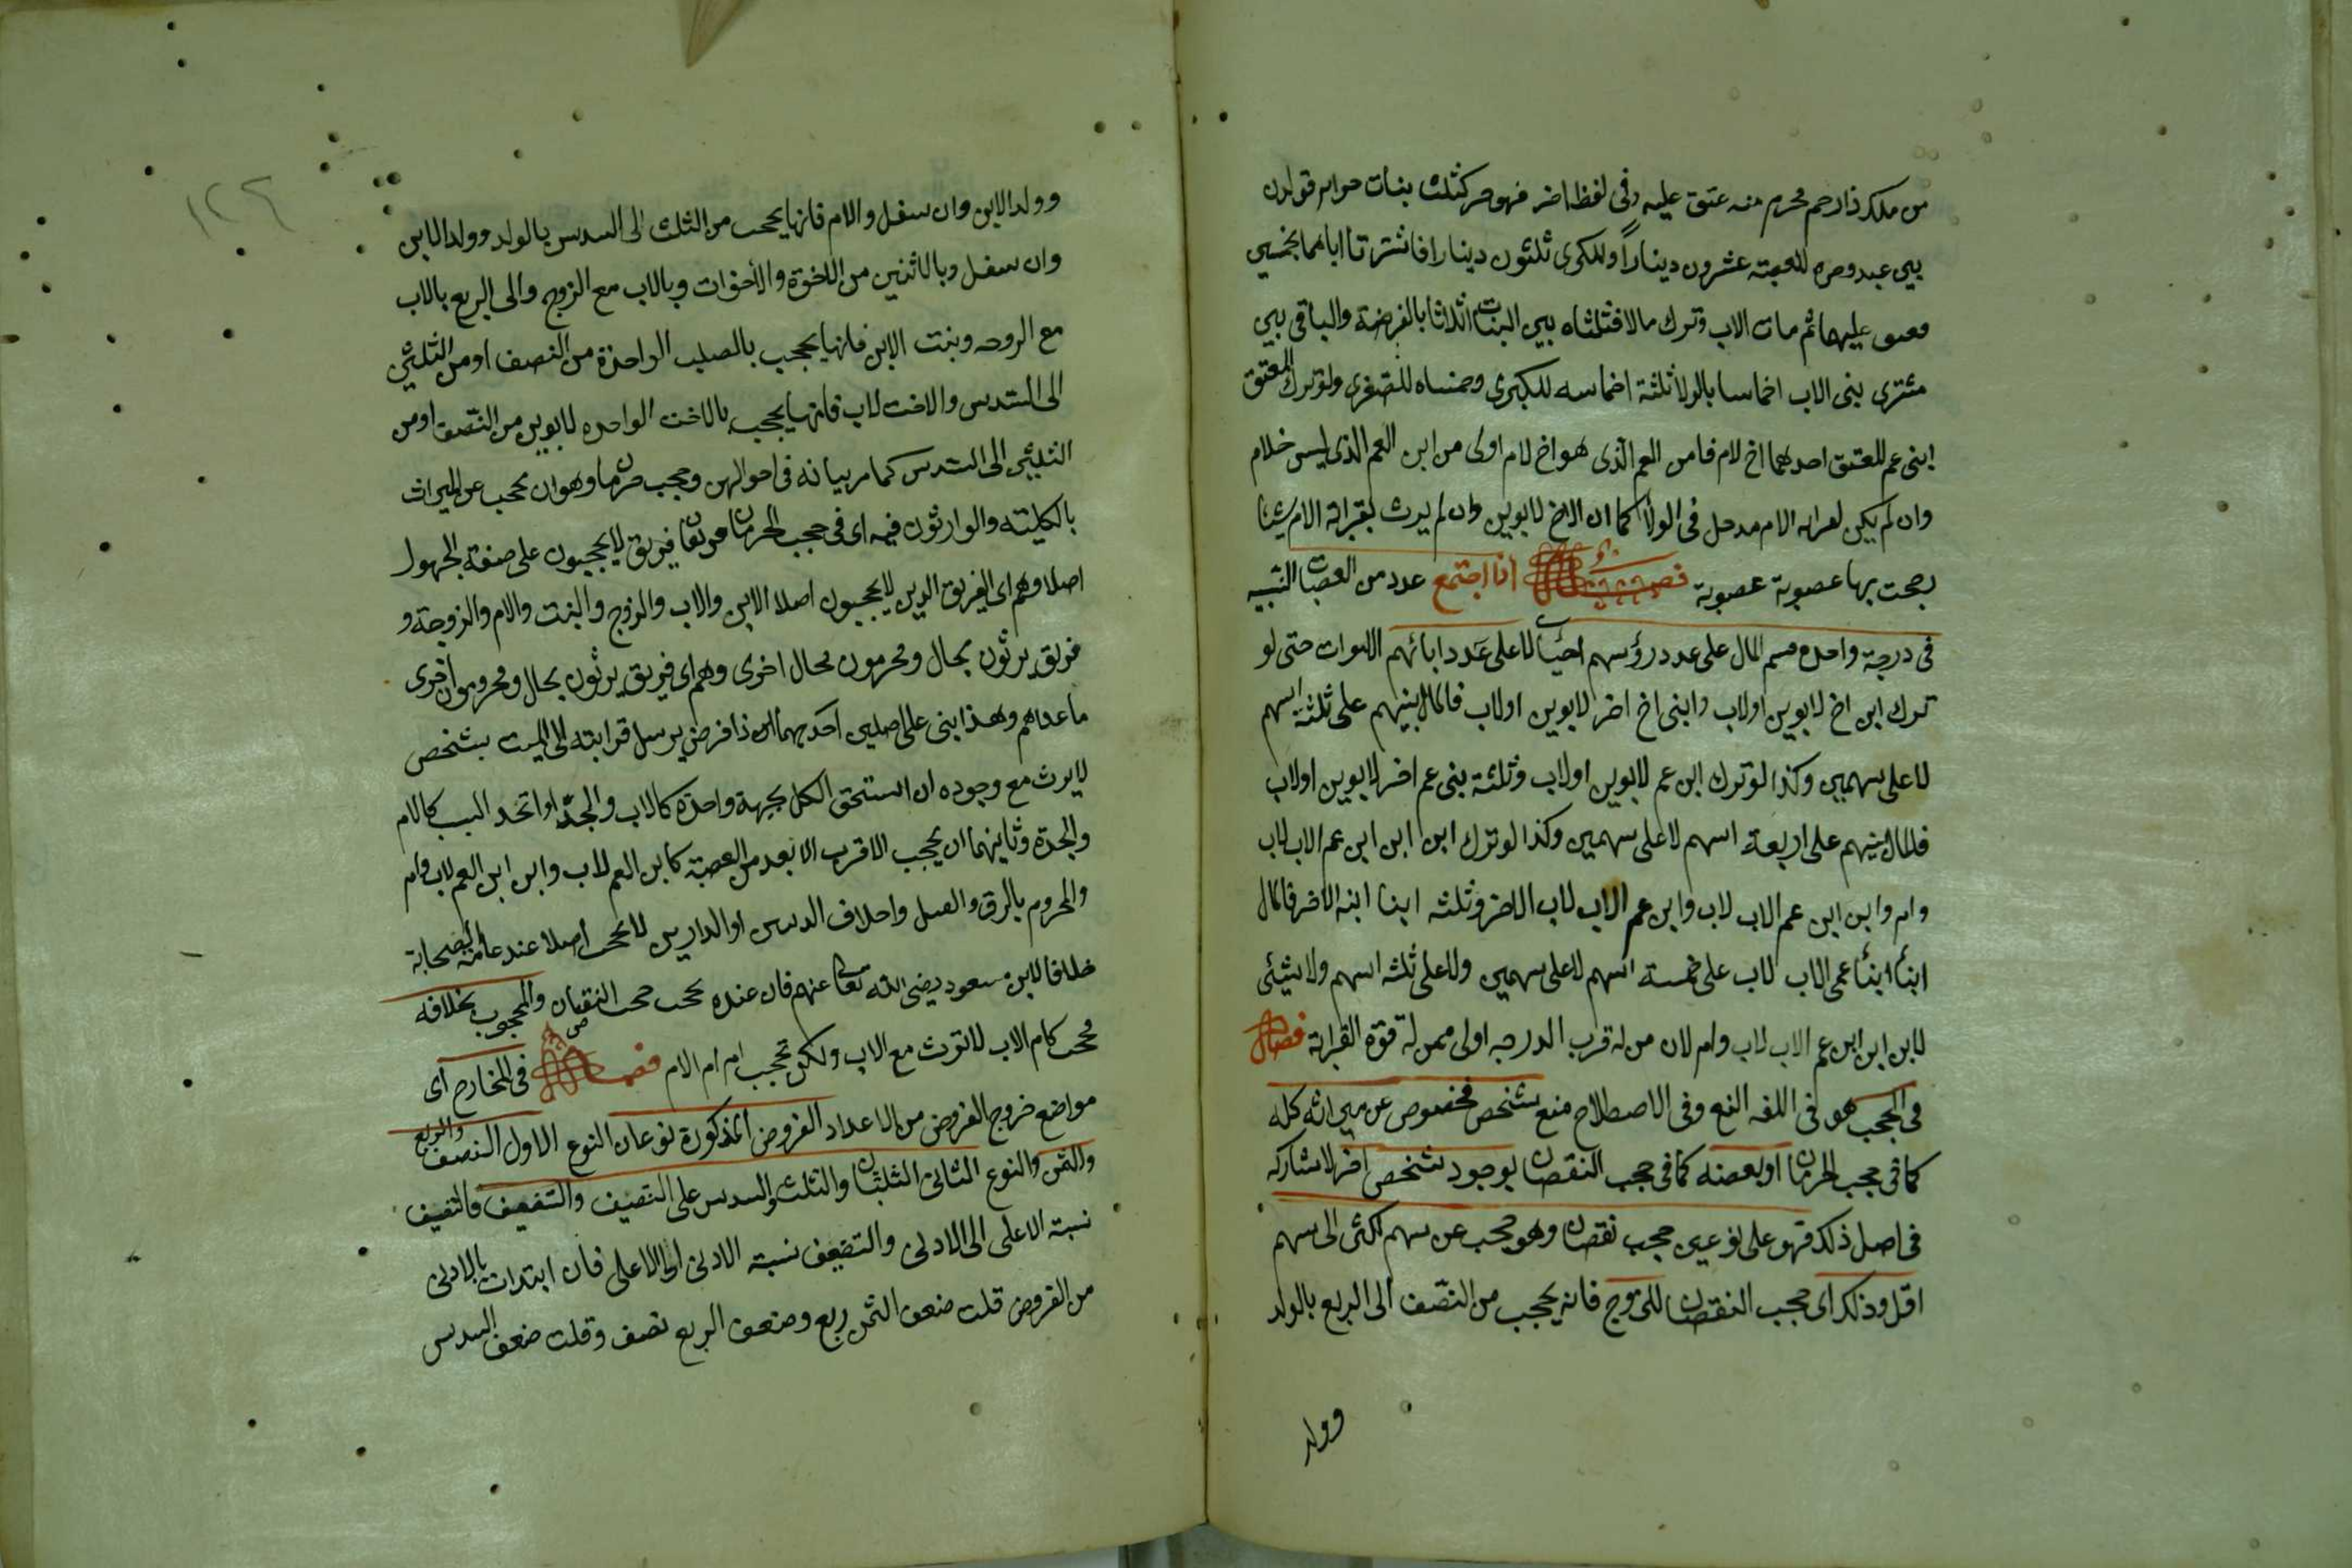 من ملك ذا رحم محرم منه عتق عليه وفى لفظ اخر فهو حر كثلث بنات حواير قولدن
بين عبد وحره للصغرى عشرون دينارًا وللكبرى ثلثون دينارا فاشترتا اباهما بخمسين
فعتق عليهما ثم مات الاب وترك مالا فثلثاه بين البنات اثلاثا بالفرضية والباقى بين
مشترى بنى الاب اخماسا بالولا ثلثة اخماسه للكبرى وخمساه للصغرى ولو ترك المعتق
ابنى عم للمعتق احدهما اخ لام فابن العم الذى هو اخ لام اولى من ابن العم الذى ليس خلام
وان لم يكن لقرابة الام مدخل فى الولا كما ان الاخ لابوين وان لم يرث بقرابة الام شيئا
رجحت بها عصوبة عصوبة فصل اذا اجتمع عدد من العصبات النسبية
فى درجة واحدة قسم المال على عدد رؤسهم احياء لا على عدد ابائهم الاموات حتى لو
ترك ابن اخ لابوين اولاب وابنى اخ اخر لابوين اولاب فالمال بينهم على ثلثة اسهم
لا على سهمين وكذا لو ترك ابن عم لابوين اولاب وثلثة بنى عم اخر لابوين اولاب
فالمال بينهم على اربعة اسهم لا على سهمين وكذا لو ترك ابن ابن ابن عم الاب لاب
وام وابن ابن عم الاب لاب وابن عم الاب لاب الاخر وثلثه ابنا ابنه الاخر فالمال
ابنا ابنا عمى الاب لاب على خمسة اسهم لا على سهمين ولا على ثلثه اسهم ولا شيئ
لابن ابن ابن عم الاب لاب وام لان من له قرب الدرجه اولى ممن له قوة القرابة فصل
فى الحجب هو فى اللغه المنع وفى الاصطلاح منع شخص مخصوص عن ميراثه كله
كما فى حجب الحرمان او بعضه كما فى حجب النقصان بوجود شخص اخر لا شاركه
فى اصل ذلك فهو على نوعين حجب نقصان وهو حجب عن سهم اكثر الى سهم
اقل وذلك اى حجب النقصان للزوج فانه يحجب من النصف الى الربع بالولد
وولد
وولد الابن وان سفل والام فانها يحجب من الثلث الى السدس بالولد وولد الابن
وان سفل وبالاثنين من الاخوة والاخوات وبالاب مع الزوج والى الربع بالاب
مع الزوجه وبنت الابن فانها يحجب بالصلب الواحدة من النصف او من الثلثين
الى السدس والاخت لاب فانها يحجب بالاخت الواحده لابوين من النصف او من
الثلثين الى السدس كما مر بيانه فى احوالهن وحجب حرمان وهو ان يحجب عن الميراث
بالكلية والوارثون فيه اى فى حجب الحرمان فريقان فريق لا يحجبون على صيغة المجهول
اصلا وهم اى الفريق الذين لا يحجبون اصلا الابن والاب والزوج والبنت والام والزوجة و
فريق يرثون بحال ويحرمون بحال اخرى وهم اى فريق يرثون بحال ويحرمون اخرى
ما عداهم وهذا ينبى على اصلين احدهما ان ذا فرض يرسل قرابته الى الميت بشخص
لا يرث مع وجوده ان استحق الكل بجهة واحدة كالاب والجد او اتحد السبب كالام
والجدة وثانيهما ان يحجب الاقرب الابعد من العصبة كابن العم لاب وابن ابن العم لاب وام
والمحروم بالرق والقتل واختلاف الدينين او الدارين لا يحجب اصلا عند عامة الصحابة
خلافا لابن مسعود رضى الله تعالى عنهم فان عنده يحجب حجب النقصان والمحجوب بخلافه
يحجب كام الاب لا ترث مع الاب ولكن تحجب ام ام الام فصل فى المخارج اى
مواضع خروج الفروض من الاعداد الفروض المذكورة نوعان النوع الاول النصف والربع
والثمن والنوع الثانى الثلثان والثلث والسدس على التنصيف والتضعيف فالتنصيف
نسبة الاعلى الى الادنى والتضعيف نسبة الادنى الى الاعلى فان ابتدات بالادنى
من الفروض قلت ضعف الثمن ربع وضعف الربع نصف وقلت ضعف السدس